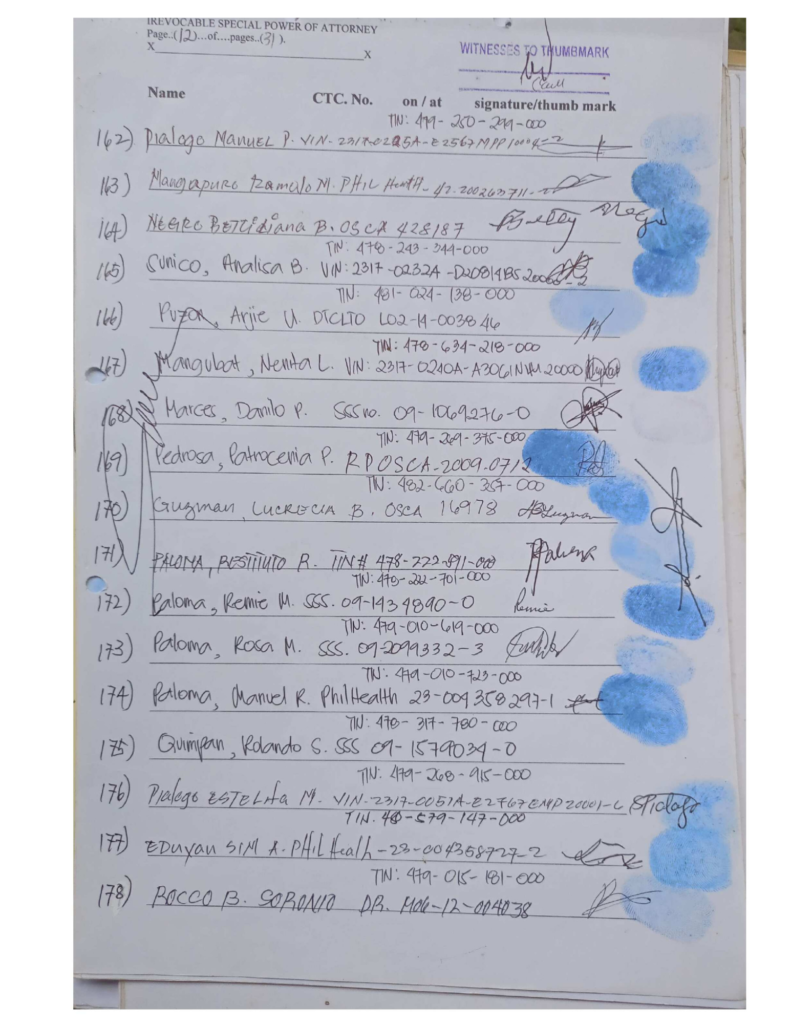 IREVOCABLE SPECIAL POWER OF ATTORNEY
Page..(12)...of....pages..(31).
X____________________________X
WITNESSES TO THUMBMARK
Name CTC. No. on / at signature/thumb mark
TIN: 479-250-299-000
162) Dialogo MANUEL P. VIN-2317-0295A-E2567MPP10004-2
163) Mangapuro Romulo M. PHIL Health-
NEGRO B. OSCA 428187 Betty Negro
164)
TIN: 478-243-344-000
165) Sunico, Analisa B. VIN: 2317-0232A-D20814BS20005-2
TIN: 481-024-138-000
166) Puzon, Arjie U. DTCLTO L02-14-003846
TIN: 478-634-218-000
167) Mangubat, Nenita L. VIN: 2317-0240A-A3061NVM20000
168) Marces, Danilo P. SSS no. 09-1069276-0
TIN: 479-269-375-000
169) Pedrosa, Patrocenia P. RPOSCA-2009-0712
TIN: 482-660-357-000
170) Guzman, LUCRECIA B. OSCA 16978
171) PALOMA, RESTITUTO R. TIN# 478-222-891-000
TIN: 478-222-701-000
172) Paloma, Remie M. SSS. 09-1434890-0 Remie
TIN: 479-010-619-000
173) Paloma, Rosa M. SSS. 09-2099332-3
TIN: 479-010-723-000
174) Paloma, Manuel R. PhilHealth 23-004358297-1
TIN: 478-317-780-000
175) Quimpan, Rolando S. SSS 09-1579034-0
TIN: 479-268-915-000
176) Dialogo ESTELITA M. VIN-2317-0051A-E2767EMP20001-6
TIN. -579-147-000
177) EDUYAN SIM A. PHIL Health-23-004358727-2
TIN: 479-015-181-000
178) ROCCO B. SORONIO DR. M06-12-004038